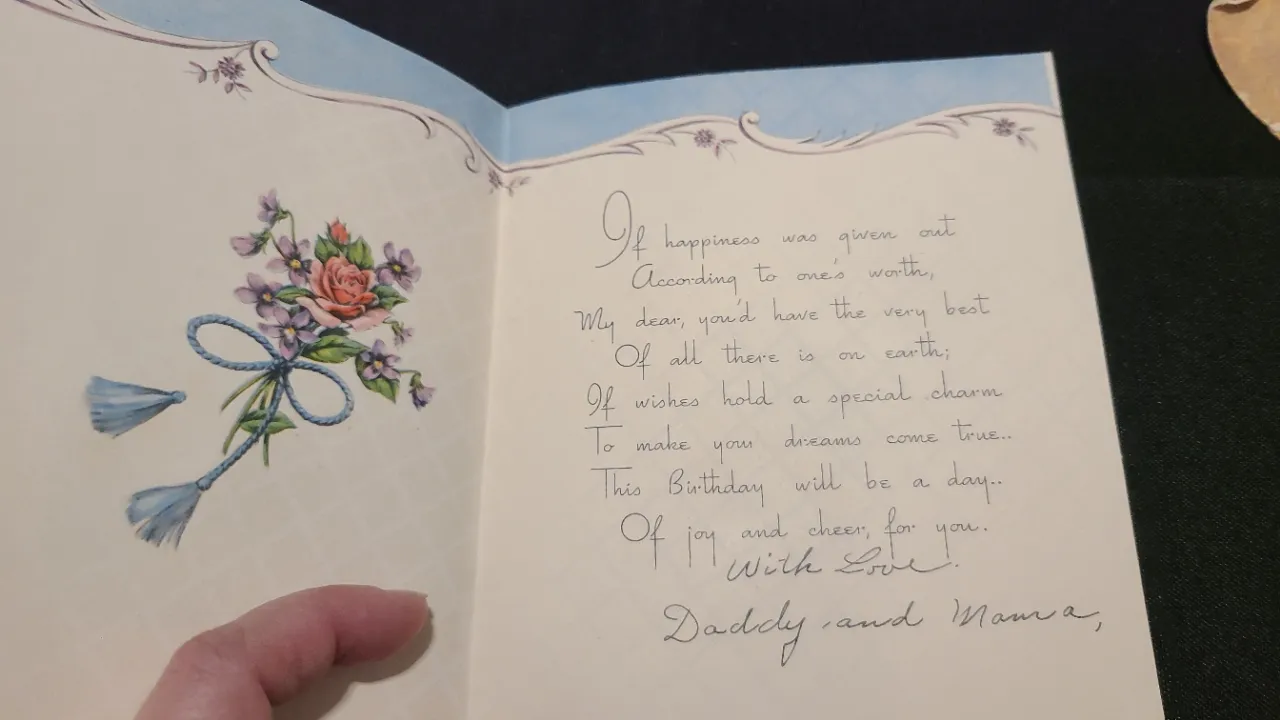 If happiness was given out
According to one's worth,
My dear, you'd have the very best
Of all there is on earth;
If wishes hold a special charm
To make your dreams come true..
This Birthday will be a day..
Of joy and cheer, for you.
With Love.
Daddy and Mama,